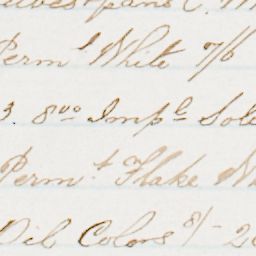 pans C.
Perm^t White 7/6
3. 8^vo Imp^l Sole
Perm^t Flake
Oil Colors 8/- 20